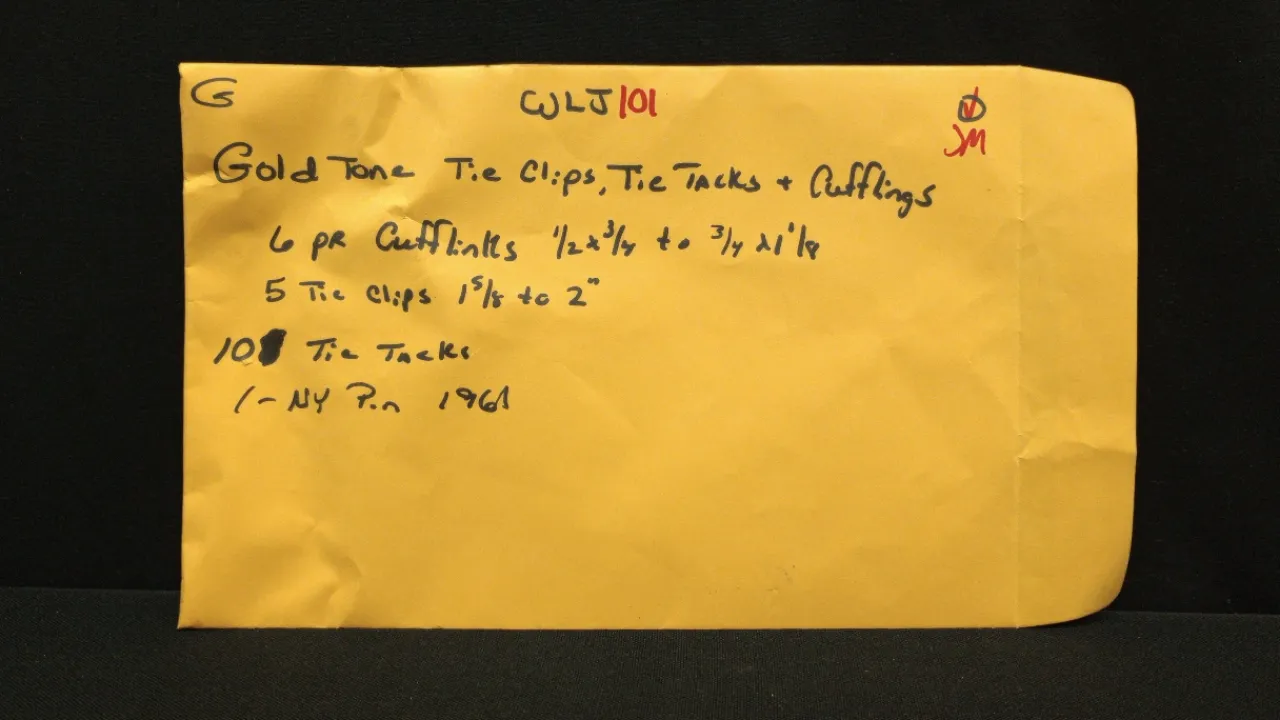 G CWLJ101 D
JM
Gold Tone Tie Clips, Tie Tacks + Cufflings
6 pr Cufflinks 1/2 x 3/4 to 3/4 x 1 1/8
5 Tie Clips 1 5/8 to 2"
10 Tie Tacks
1- NY Pin 1961